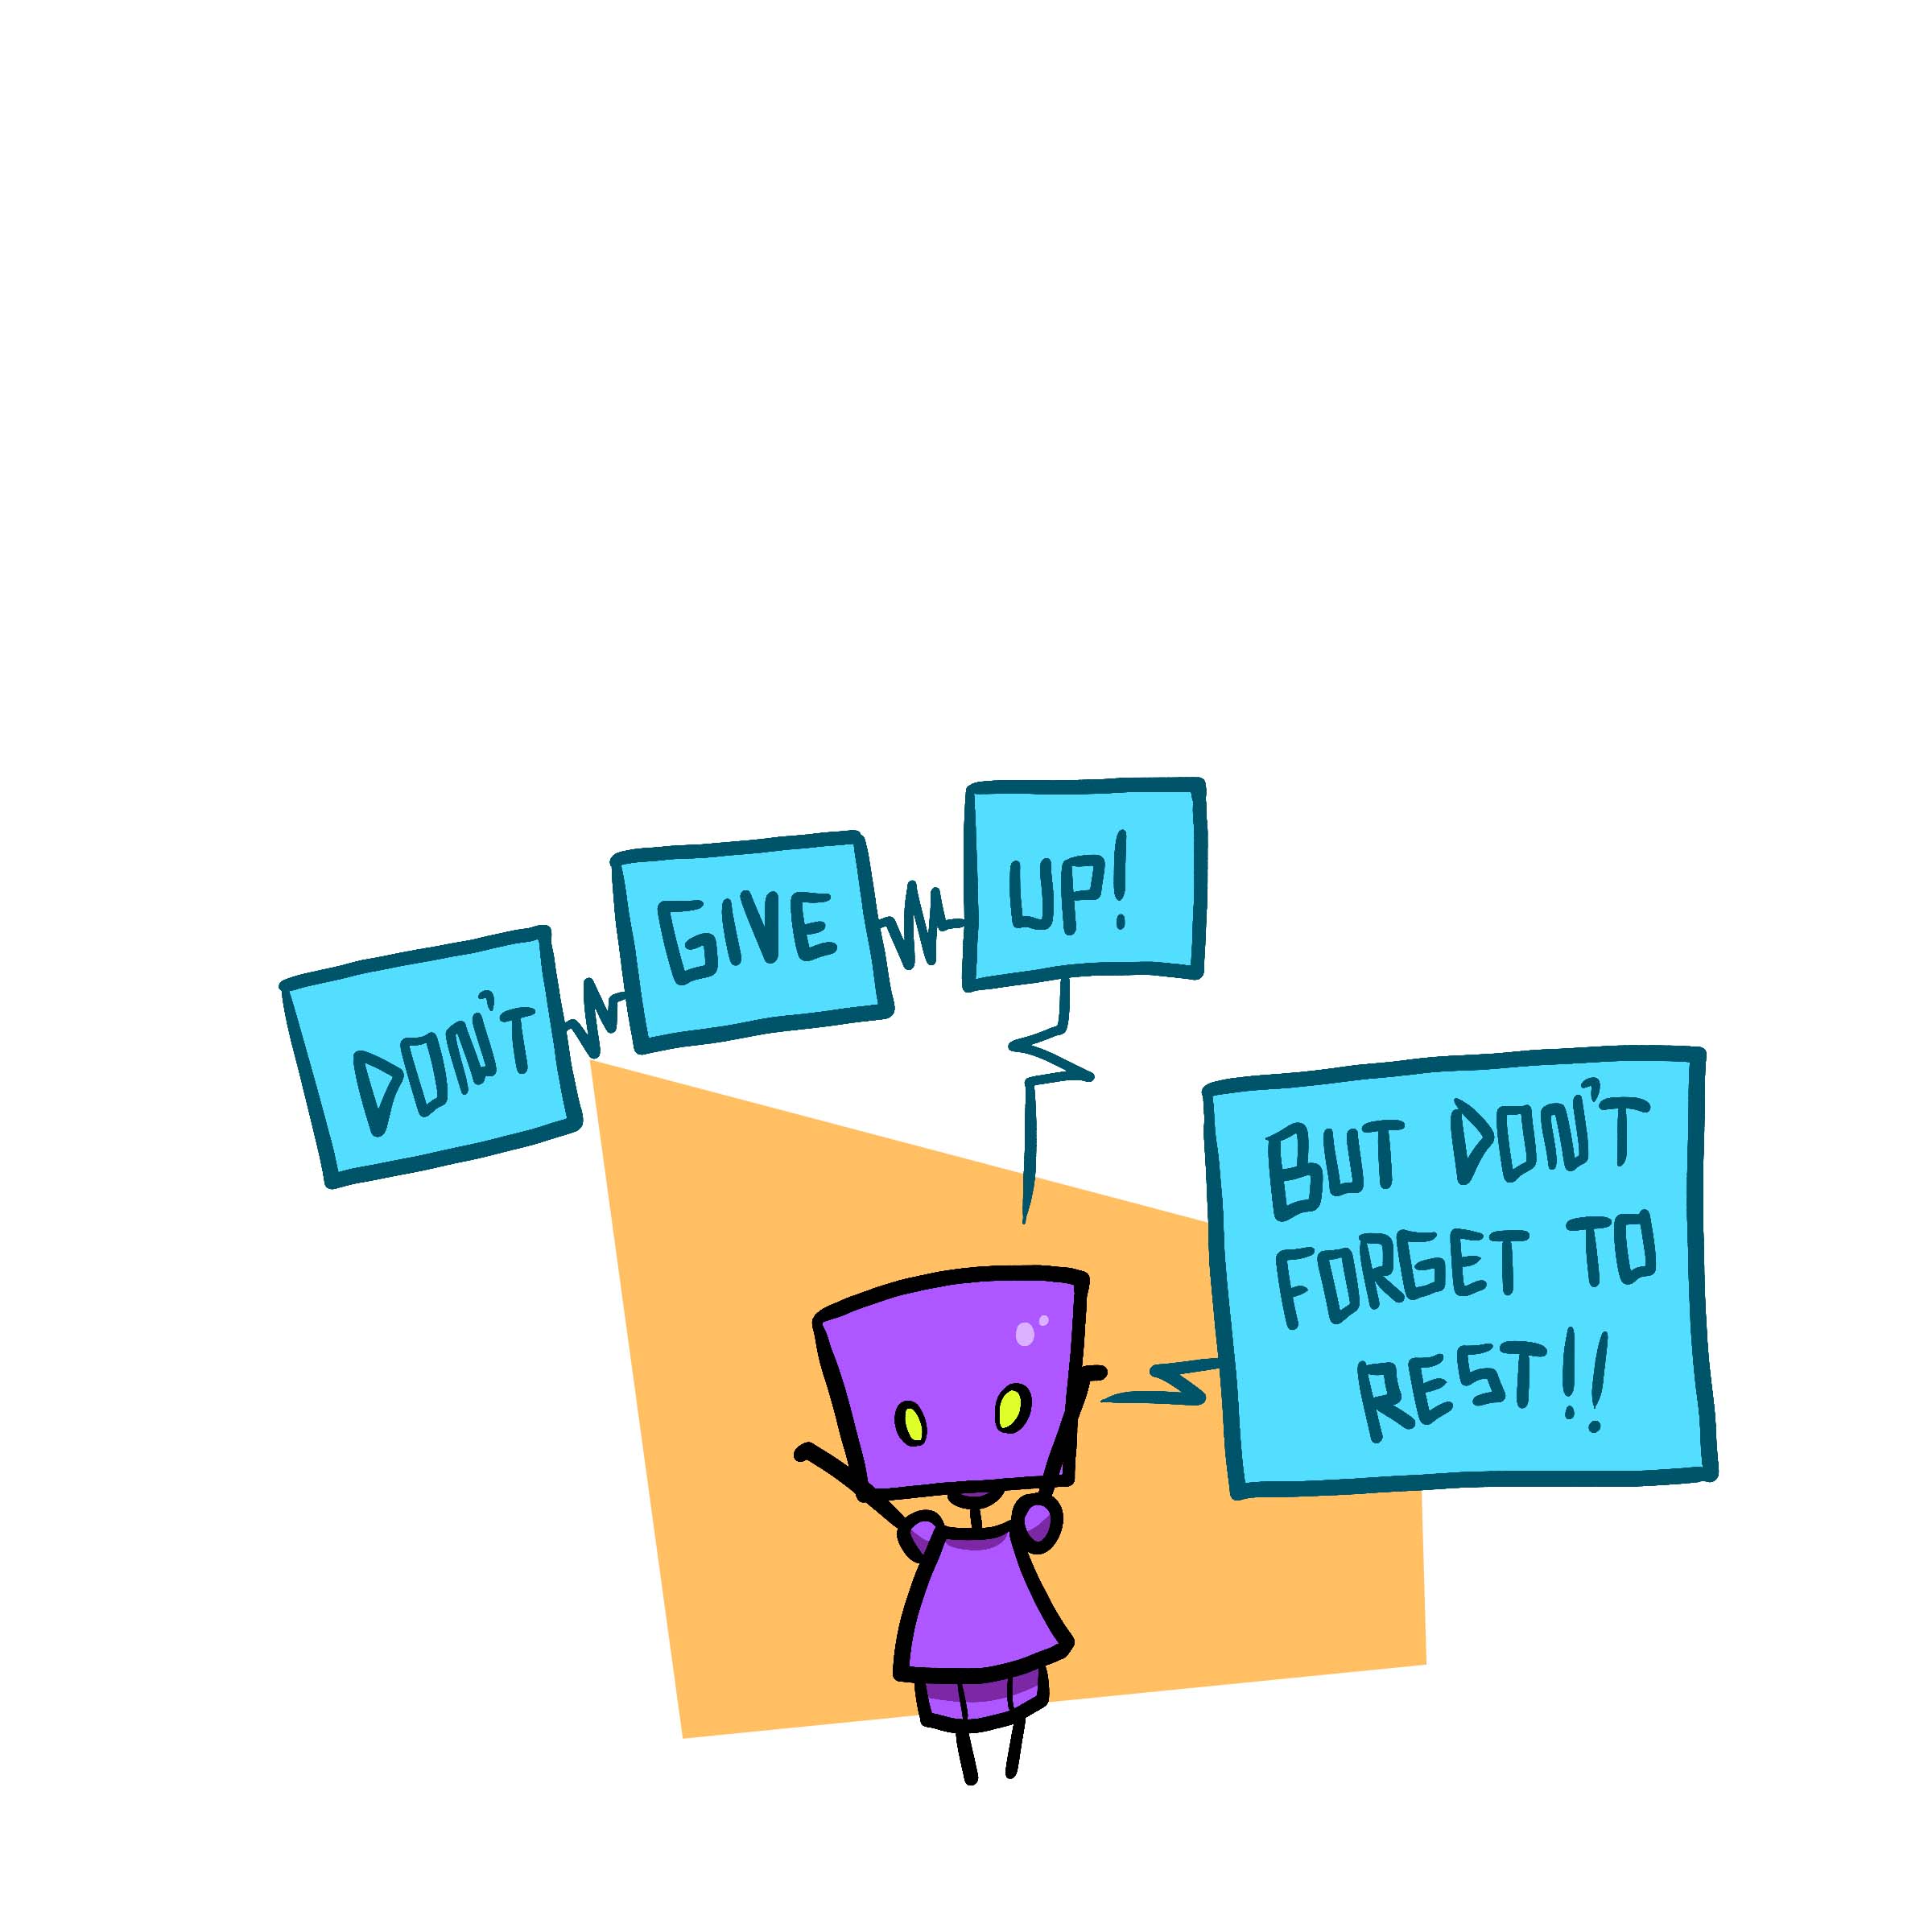 DON'T
GIVE
UP!
BUT DON'T
FORGET TO
REST!!